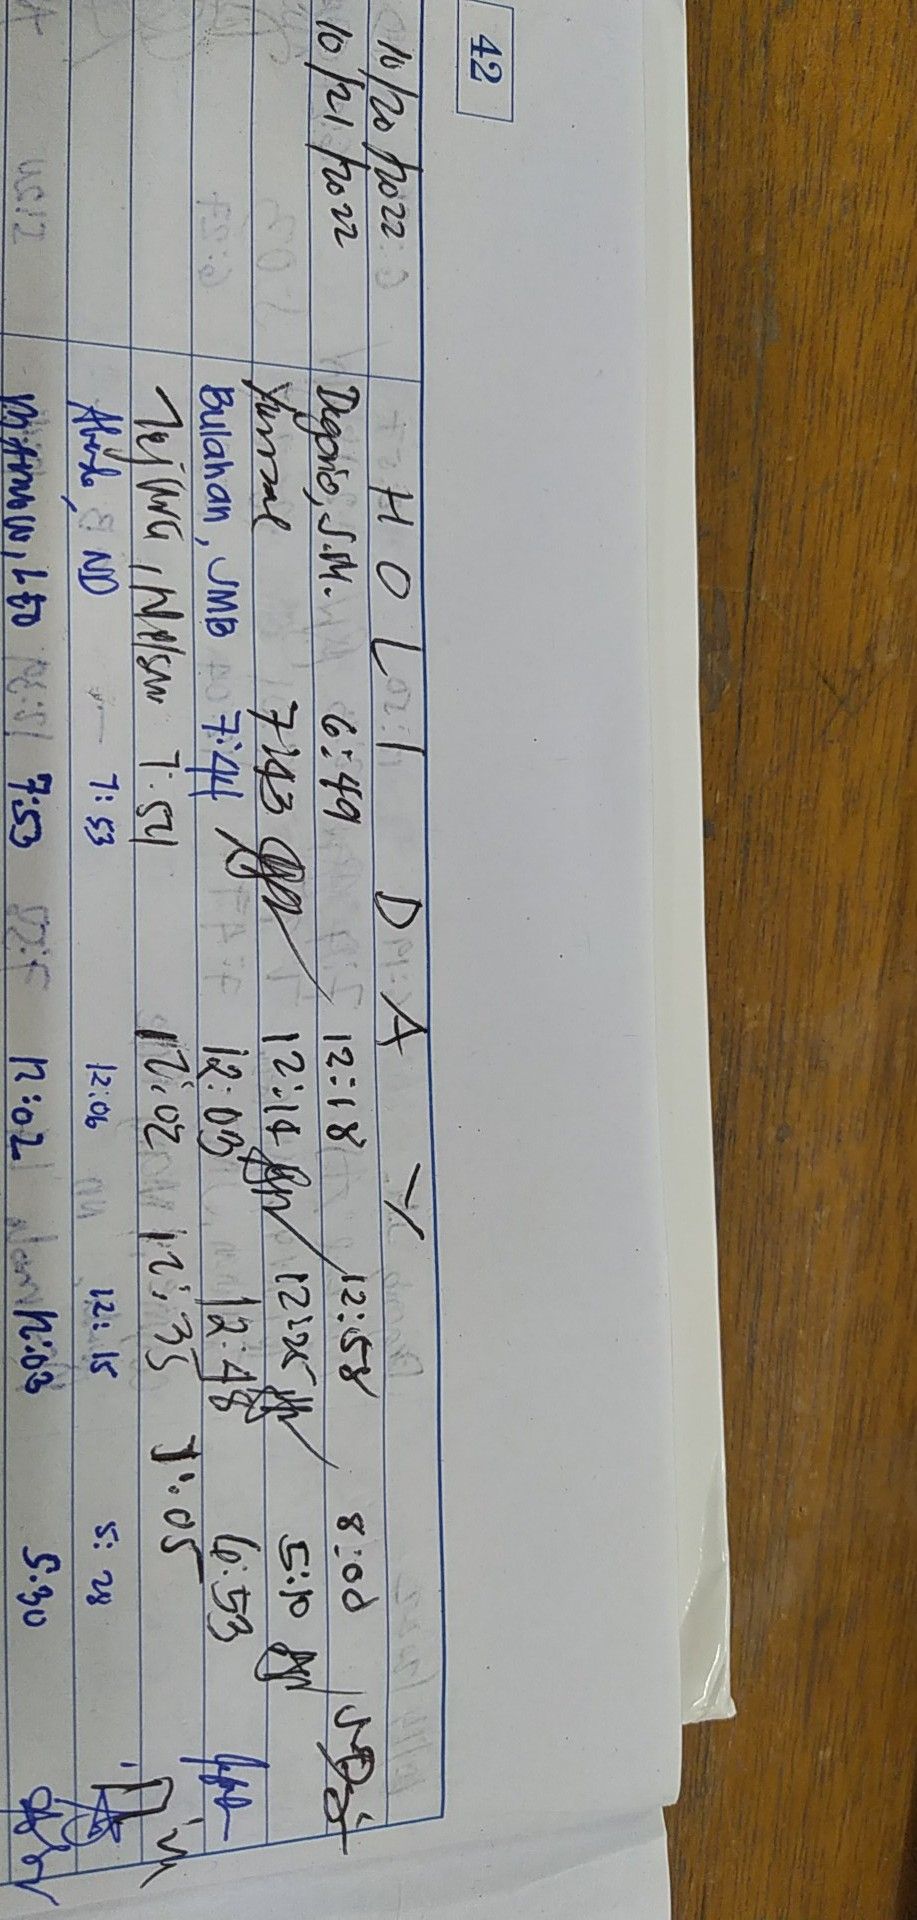 42
10/20/2022 H O L I D A Y
10/21/2022 Degorio, J.M. 6:49 12:18 12:58 8:00
7:43 12:14 12:25 5:10
Bulahan, JMB 7:44 12:09 12:48 6:53
7:54 12:02 12:35 7:05
ND 7:53 12:06 12:15 5:28
7:53 12:02 12:03 5:30